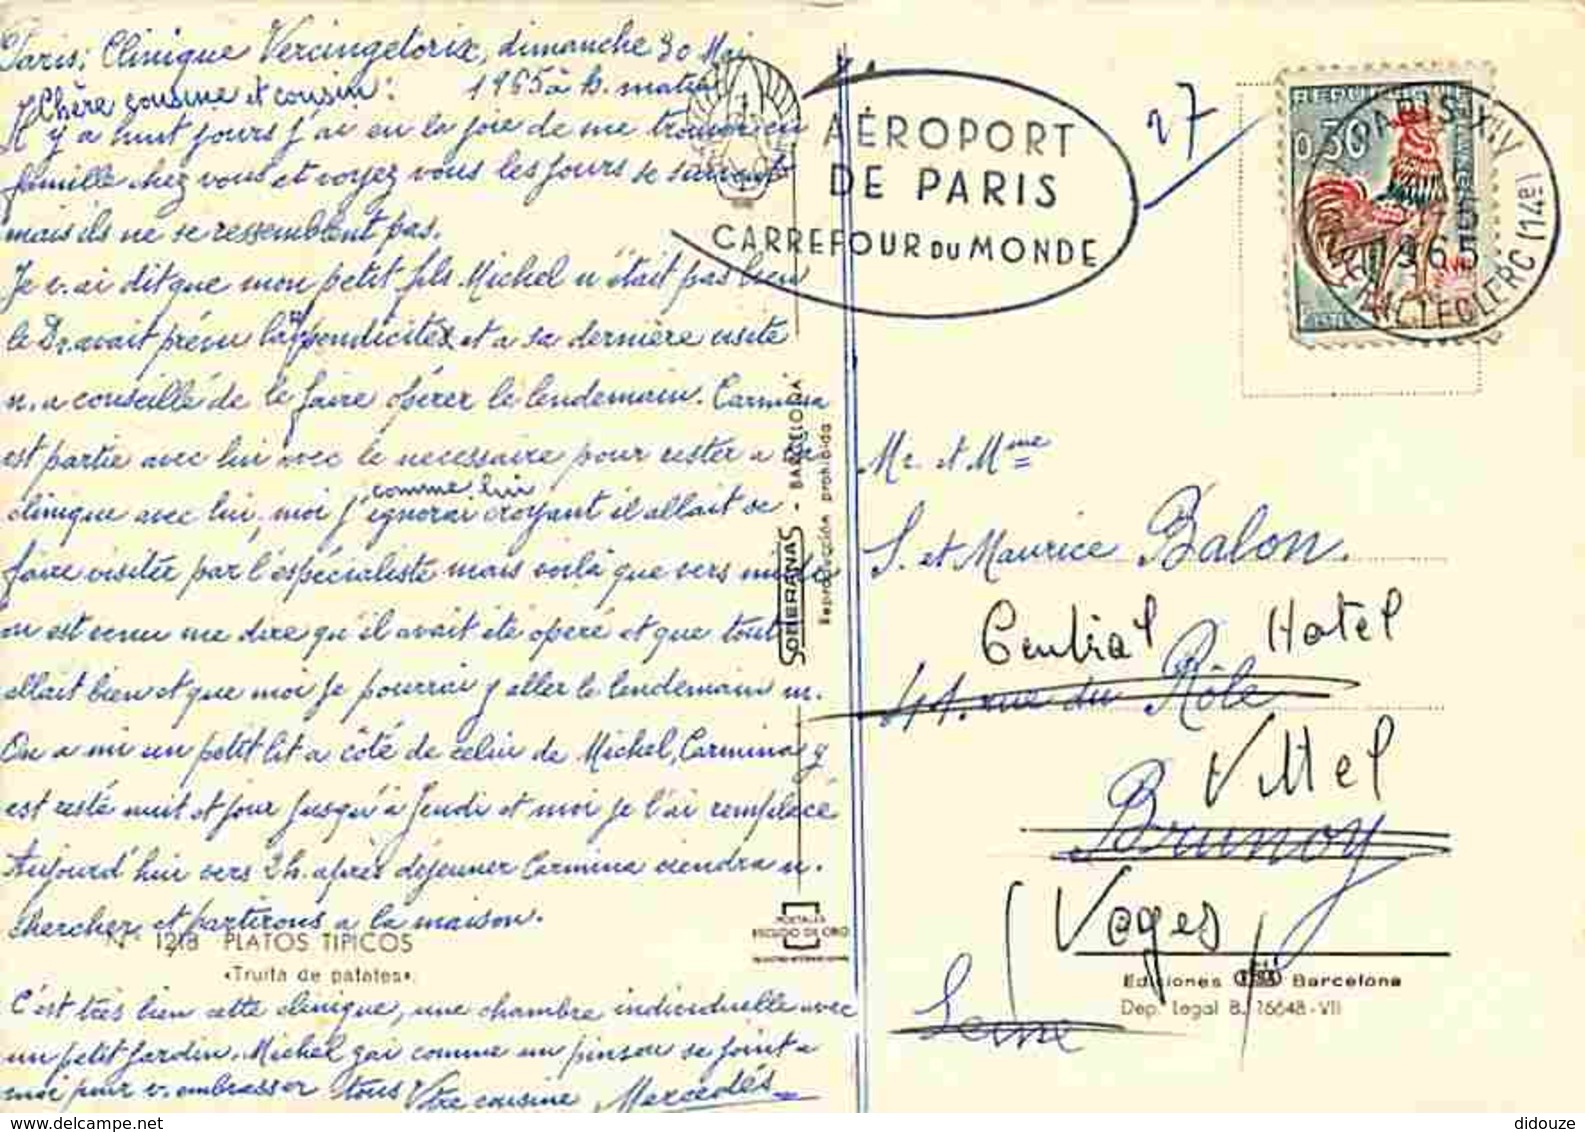 Paris, Clinique Vercingetorix, dimanche 30 Mai
1965 à h. matin
Chère cousine et cousin :
Il y a huit jours j'ai eu la joie de me trouver en
famille chez vous et voyez vous les jours se suivent
mais ils ne se ressemblent pas.
Je v. ai dit que mon petit fils Michel n'était pas bien
le Dr. avait prévu l'appendicite et a sa dernière visite
n. a conseillé de le faire opérer le lendemain. Carmina
est partie avec lui avec le necessaire pour rester a la
clinique avec lui, moi j'ignorai comme lui croyant il allait se
faire visiter par l'éspécialiste mais voilà que vers midi
on est venu me dire qu'il avait été opéré et que tout
allait bien et que moi je pourrai y aller le lendemain m.
On a mi un petit lit a côté de celui de Michel, Carmina y
est resté nuit et jour jusqu'à Jeudi et moi je l'ai remplacé
Aujourd'hui vers 2h. après déjeuner Carmina viendra n.
chercher et partirons a la maison.
N° 1218 PLATOS TIPICOS
«Truita de patates».
C'est très bien cette clinique, une chambre individuelle avec
un petit jardin. Michel gai comme un pinson se joint a
moi pour v. embrasser tous Vtre cousine Mercedés
SOBERANAS - BARCELONA
Reproducción prohibida
POSTALES
ESCUDO DE ORO
AÉROPORT
DE PARIS
CARREFOUR DU MONDE
27
REPUBLIQUE
0,30
PARIS XIV
1965
LECLERC (14e)
Mr. et Mme
S. et Maurice Balon.
Central Hotel
41. rue du Rôle
Vittel
Brunoy
(Voges)
Seine
Ediciones Barcelona
Dep. Legal B. 26648-VII
didouze